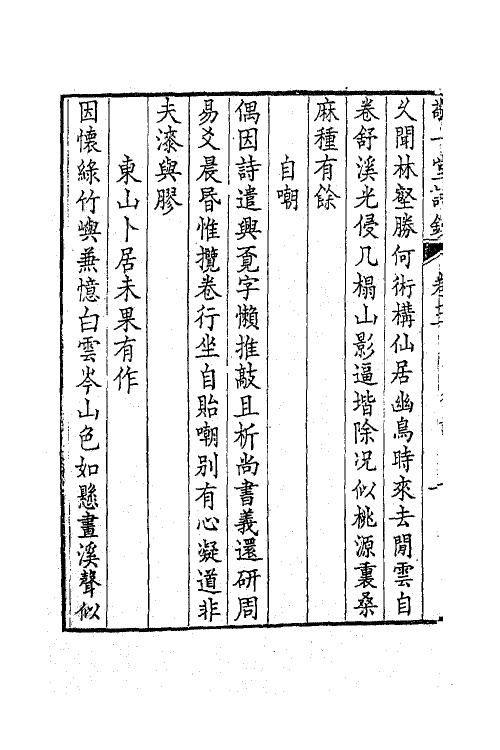 敬一堂詩鈔 卷十
久聞林壑勝何術構仙居幽鳥時來去閒雲自
卷舒溪光侵几榻山影逼堦除况似桃源裏桑
麻種有餘
自嘲
偶因詩遣興覔字懶推敲且析尚書義還研周
易爻晨昏惟攬卷行坐自貽嘲別有心凝道非
夫漆與膠
東山卜居未果有作
因懷綠竹嶼兼憶白雲岑山色如懸畫溪聲似